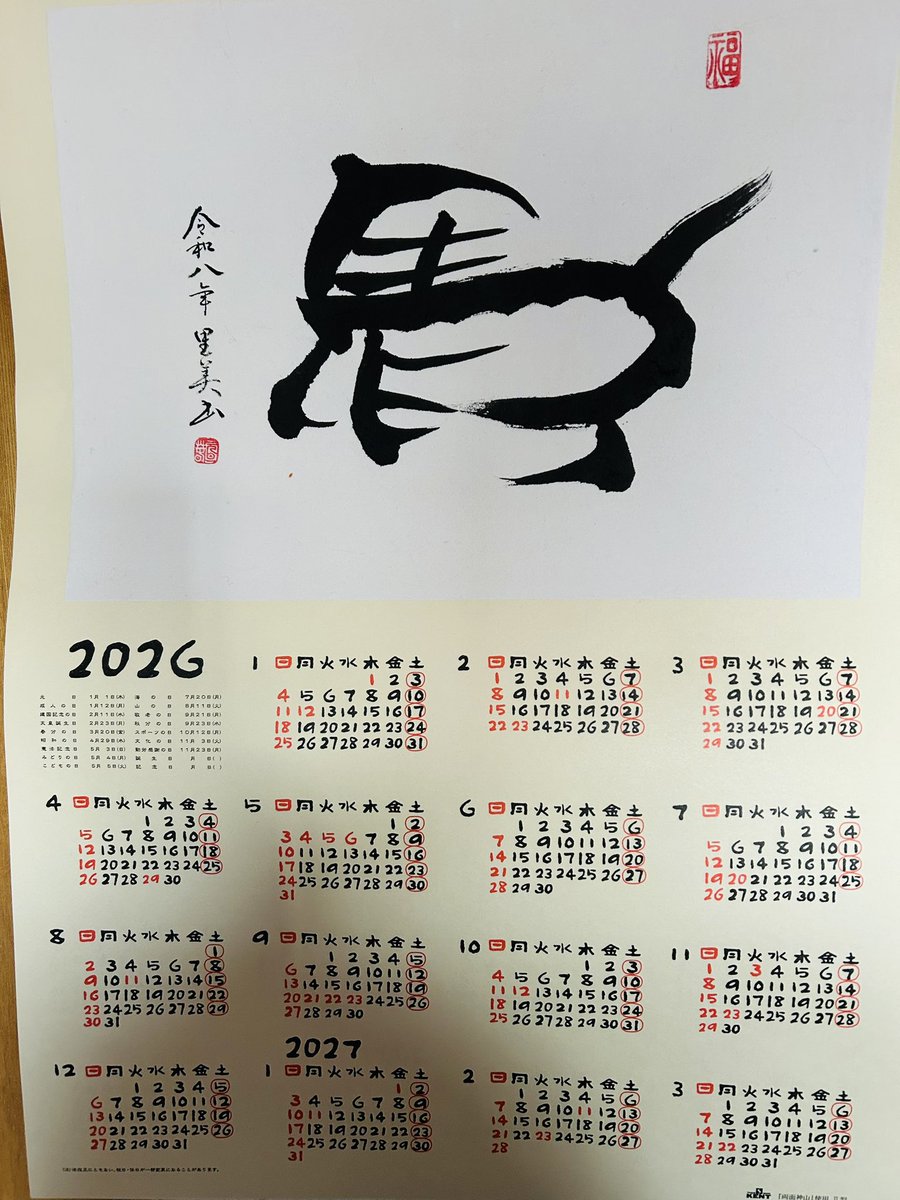 福
馬
令和八年 里美書
2026
元日 1月1日(木) 海の日 7月20日(月)
成人の日 1月12日(月) 山の日 8月11日(火)
建国記念の日 2月11日(水) 敬老の日 9月21日(月)
天皇誕生日 2月23日(月) 秋分の日 9月23日(水)
春分の日 3月20日(金) スポーツの日 10月12日(月)
昭和の日 4月29日(水) 文化の日 11月3日(火)
憲法記念日 5月3日(日) 勤労感謝の日 11月23日(月)
みどりの日 5月4日(月) 誕生日 月 日( )
こどもの日 5月5日(火) 記念日 月 日( )
1 日月火水木金土
1 2 3
4 5 6 7 8 9 10
11 12 13 14 15 16 17
18 19 20 21 22 23 24
25 26 27 28 29 30 31
2 日月火水木金土
1 2 3 4 5 6 7
8 9 10 11 12 13 14
15 16 17 18 19 20 21
22 23 24 25 26 27 28
3 日月火水木金土
1 2 3 4 5 6 7
8 9 10 11 12 13 14
15 16 17 18 19 20 21
22 23 24 25 26 27 28
29 30 31
4 日月火水木金土
1 2 3 4
5 6 7 8 9 10 11
12 13 14 15 16 17 18
19 20 21 22 23 24 25
26 27 28 29 30
5 日月火水木金土
1 2
3 4 5 6 7 8 9
10 11 12 13 14 15 16
17 18 19 20 21 22 23
24 25 26 27 28 29 30
31
6 日月火水木金土
1 2 3 4 5 6
7 8 9 10 11 12 13
14 15 16 17 18 19 20
21 22 23 24 25 26 27
28 29 30
7 日月火水木金土
1 2 3 4
5 6 7 8 9 10 11
12 13 14 15 16 17 18
19 20 21 22 23 24 25
26 27 28 29 30 31
8 日月火水木金土
1
2 3 4 5 6 7 8
9 10 11 12 13 14 15
16 17 18 19 20 21 22
23 24 25 26 27 28 29
30 31
9 日月火水木金土
1 2 3 4 5
6 7 8 9 10 11 12
13 14 15 16 17 18 19
20 21 22 23 24 25 26
27 28 29 30
10 日月火水木金土
1 2 3
4 5 6 7 8 9 10
11 12 13 14 15 16 17
18 19 20 21 22 23 24
25 26 27 28 29 30 31
11 日月火水木金土
1 2 3 4 5 6 7
8 9 10 11 12 13 14
15 16 17 18 19 20 21
22 23 24 25 26 27 28
29 30
12 日月火水木金土
1 2 3 4 5
6 7 8 9 10 11 12
13 14 15 16 17 18 19
20 21 22 23 24 25 26
27 28 29 30 31
2027
1 日月火水木金土
1 2
3 4 5 6 7 8 9
10 11 12 13 14 15 16
17 18 19 20 21 22 23
24 25 26 27 28 29 30
31
2 日月火水木金土
1 2 3 4 5 6
7 8 9 10 11 12 13
14 15 16 17 18 19 20
21 22 23 24 25 26 27
28
3 日月火水木金土
1 2 3 4 5 6
7 8 9 10 11 12 13
14 15 16 17 18 19 20
21 22 23 24 25 26 27
28 29 30 31
KENT